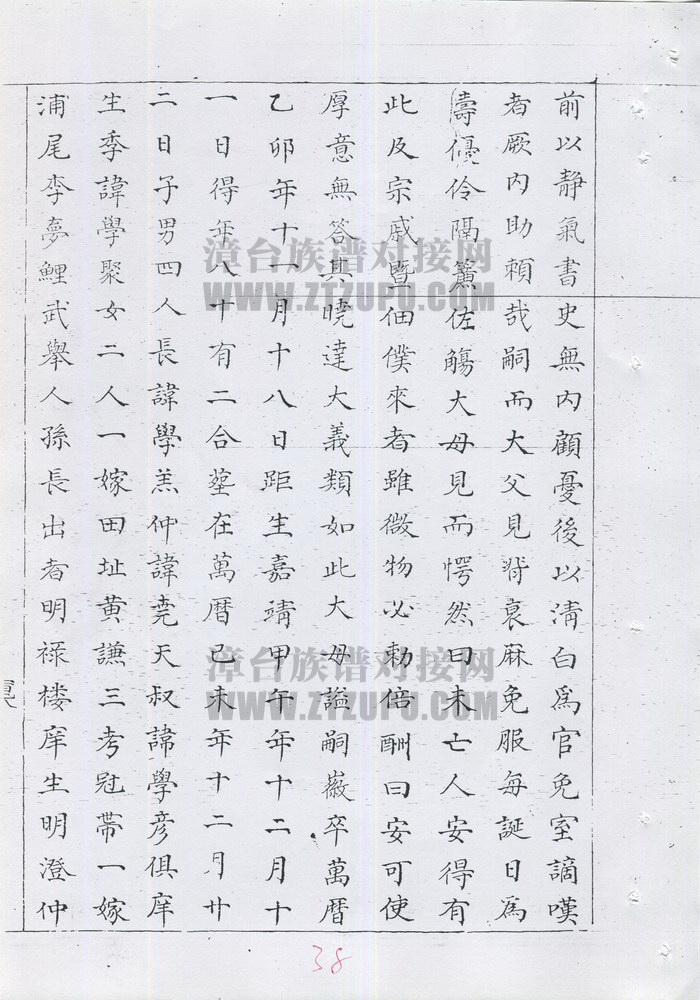 前以靜氣書史無內顧憂後以清白爲官免室謫嘆
者厥內助賴哉嗣而大父見背衰麻免服每誕日爲
壽優伶隔簾佐觴大母見而愕然曰未亡人安得有
此及宗戚暨佃僕來者雖微物必勅倍酬曰安可使
厚意無答其曉達大義類如此大母謚嗣嶶卒萬曆
乙卯年十一月十八日距生嘉靖甲午年十二月十
一日得年八十有二合塟在萬曆己未年十二月廿
二日子男四人長諱學羔仲諱堯天叔諱學彥俱庠
生季諱學聚女二人一嫁田址黄謙三考冠帶一嫁
浦尾李夢鯉武舉人孫長出者明祿楼庠生明澄仲
漳台族谱对接网
WWW.ZTZUPU.COM
漳台族谱对接网
WWW.ZTZUPU.COM
38